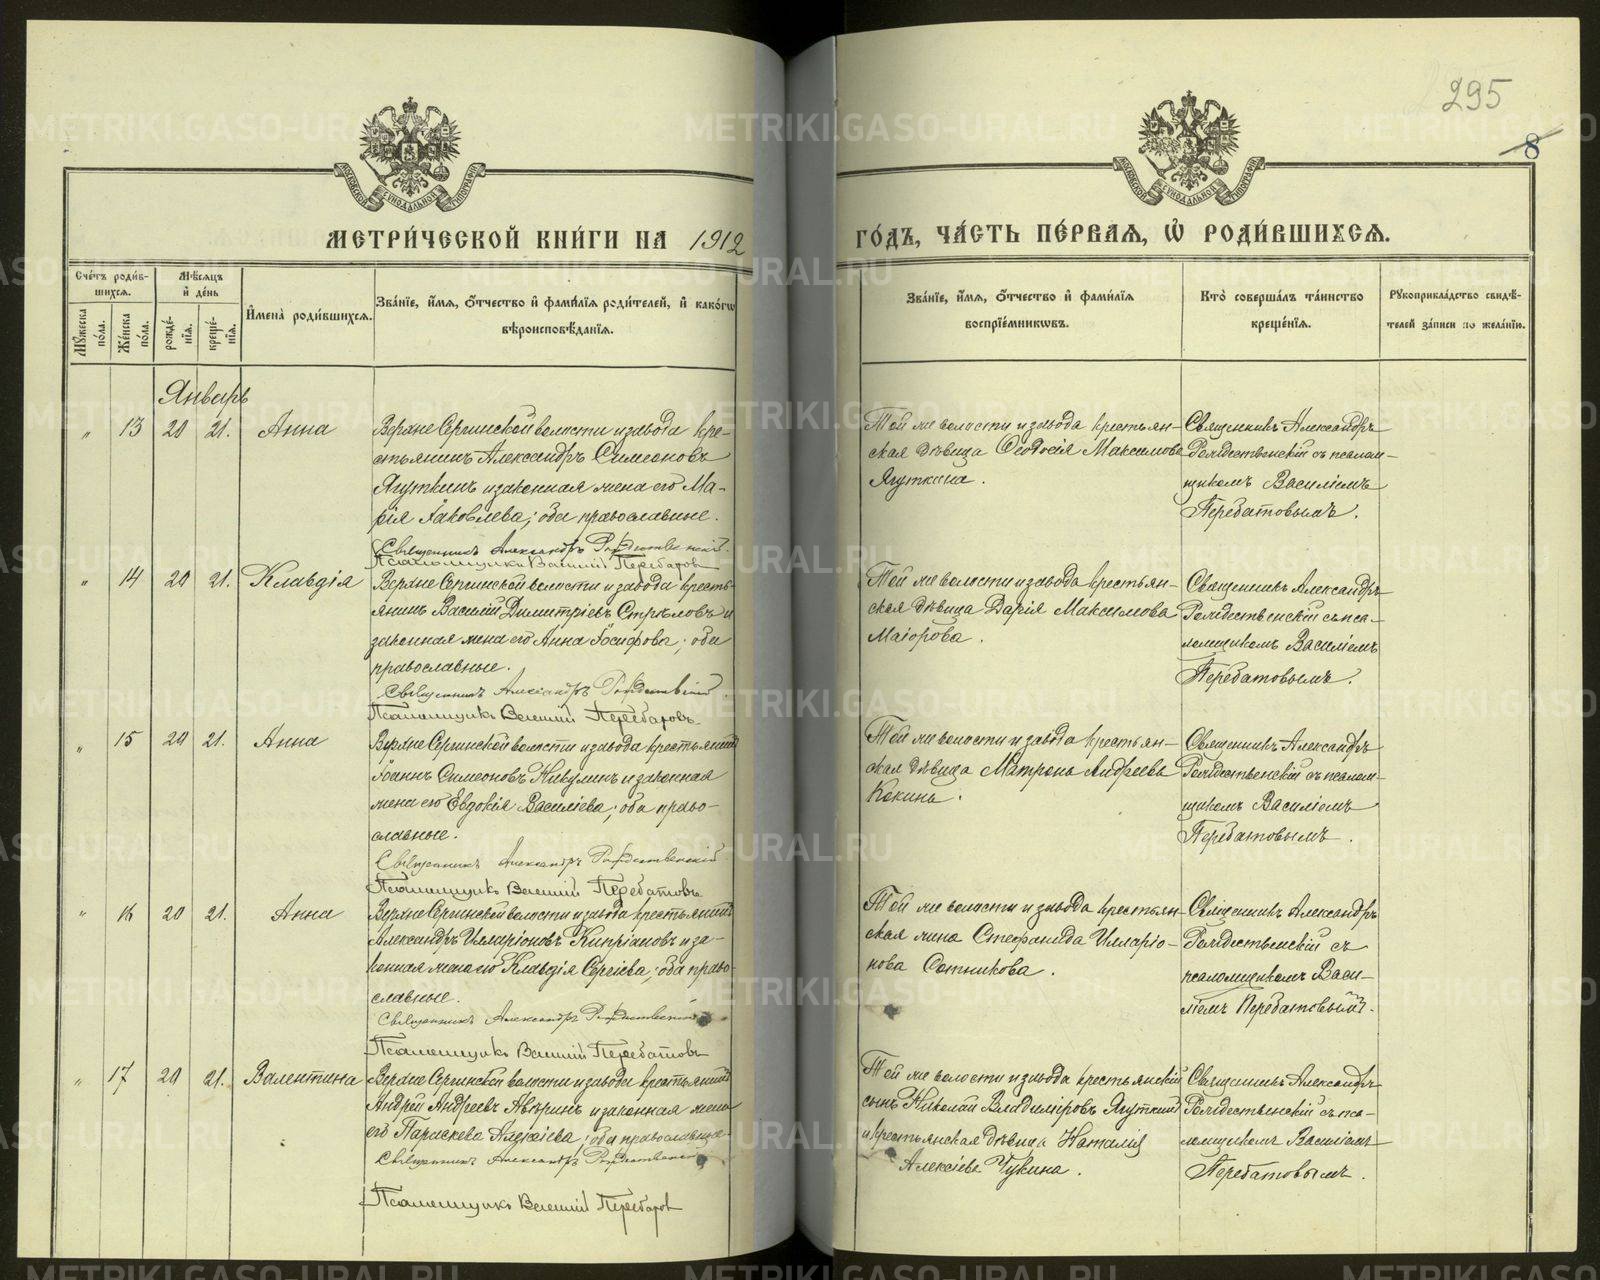 295
8
МОСКОВСКОЙ СѴНОДАЛЬНОЙ ТИПОГРАФІИ
МОСКОВСКОЙ СѴНОДАЛЬНОЙ ТИПОГРАФІИ
МЕТРИ́ЧЕСКОЙ КНИ́ГИ НА 1912
ГО́ДЪ, ЧА́СТЬ ПЕ́РВАЯ, Ѽ РОДИ́ВШИХСЯ.
Сче́тъ роди́в-
шихся.
Мѣ́сяцъ
и҆ де́нь
Мꙋ́жеска по́ла.
Же́нска по́ла.
рожде́-
нїя.
креще́-
нїя.
И҆мена̀ роди́вшихся.
Зва́нїе, и҆́мя, ѻ҆́тчество и҆ фами́лїя роди́телей, и҆ како́гѡ
вѣроисповѣ́данїя.
Зва́нїе, и҆́мя, ѻ҆́тчество и҆ фами́лїя
воспрїе́мникѡвъ.
Кто̀ соверша́лъ та́инство
креще́нїя.
Рꙋкоприкла́дство свидѣ́-
телей за́писи по жела́нїю.
Январь
" 13 20 21. Анна
Верхне Сергинской волости и завода кре-
стьянинъ Александръ Симеоновъ
Ягуткинъ и законная жена его Ма-
рія Іаковлева; оба православные.
Священникъ Александръ Рождественскій.
Псаломщикъ Василій Перебатовъ
Той же волости и завода крестьян-
ская дѣвица Ѳеодосія Максимова
Ягуткина.
Священникъ Александръ
Рождественскій съ псалом-
щикомъ Василіемъ
Перебатовымъ.
" 14 20 21. Клавдія
Верхне Сергинской волости и завода кресть-
янинъ Василій Димитріевъ Стрѣловъ и
законная жена его Анна Іосифова; оба
православные.
Священникъ Александръ Рождественскій
Псаломщикъ Василій Перебатовъ
Той же волости и завода крестьян-
ская дѣвица Дарія Максимова
Маіорова.
Священникъ Александръ
Рождественскій съ пса-
ломщикомъ Василіемъ
Перебатовымъ.
" 15 20 21. Анна
Верхне Сергинской волости и завода крестьянинъ
Іоаннъ Симеоновъ Никулинъ и законная
жена его Евдокія Василіева; оба право-
славные.
Священникъ Александръ Рождественскій
Псаломщикъ Василій Перебатовъ
Той же волости и завода крестьян-
ская дѣвица Матрона Андреева
Кокина.
Священникъ Александръ
Рождественскій съ псалом-
щикомъ Василіемъ
Перебатовымъ.
" 16 20 21. Анна
Верхне Сергинской волости и завода крестьянинъ
Александръ Илларіоновъ Кипріановъ и за-
конная жена его Клавдія Сергіева; оба право-
славные.
Священникъ Александръ Рождественскій
Псаломщикъ Василій Перебатовъ
Той же волости и завода крестьян-
ская жена Стефанида Илларіо-
нова Сотникова.
Священникъ Александръ
Рождественскій съ
псаломщикомъ Васи-
ліемъ Перебатовымъ.
" 17 20 21. Валентина
Верхне Сергинской волости и завода крестьянинъ
Андрей Андреевъ Аверинъ и законная жена
его Параскева Алексіева; оба православные
Священникъ Александръ Рождественскій
Псаломщикъ Василій Перебатовъ
Той же волости и завода крестьянскій
сынъ Николай Владиміровъ Ягуткинъ
и крестьянская дѣвица Наталія
Алексіева Чукина.
Священникъ Александръ
Рождественскій съ пса-
ломщикомъ Василіемъ
Перебатовымъ.
METRIKI.GASO-URAL.RU